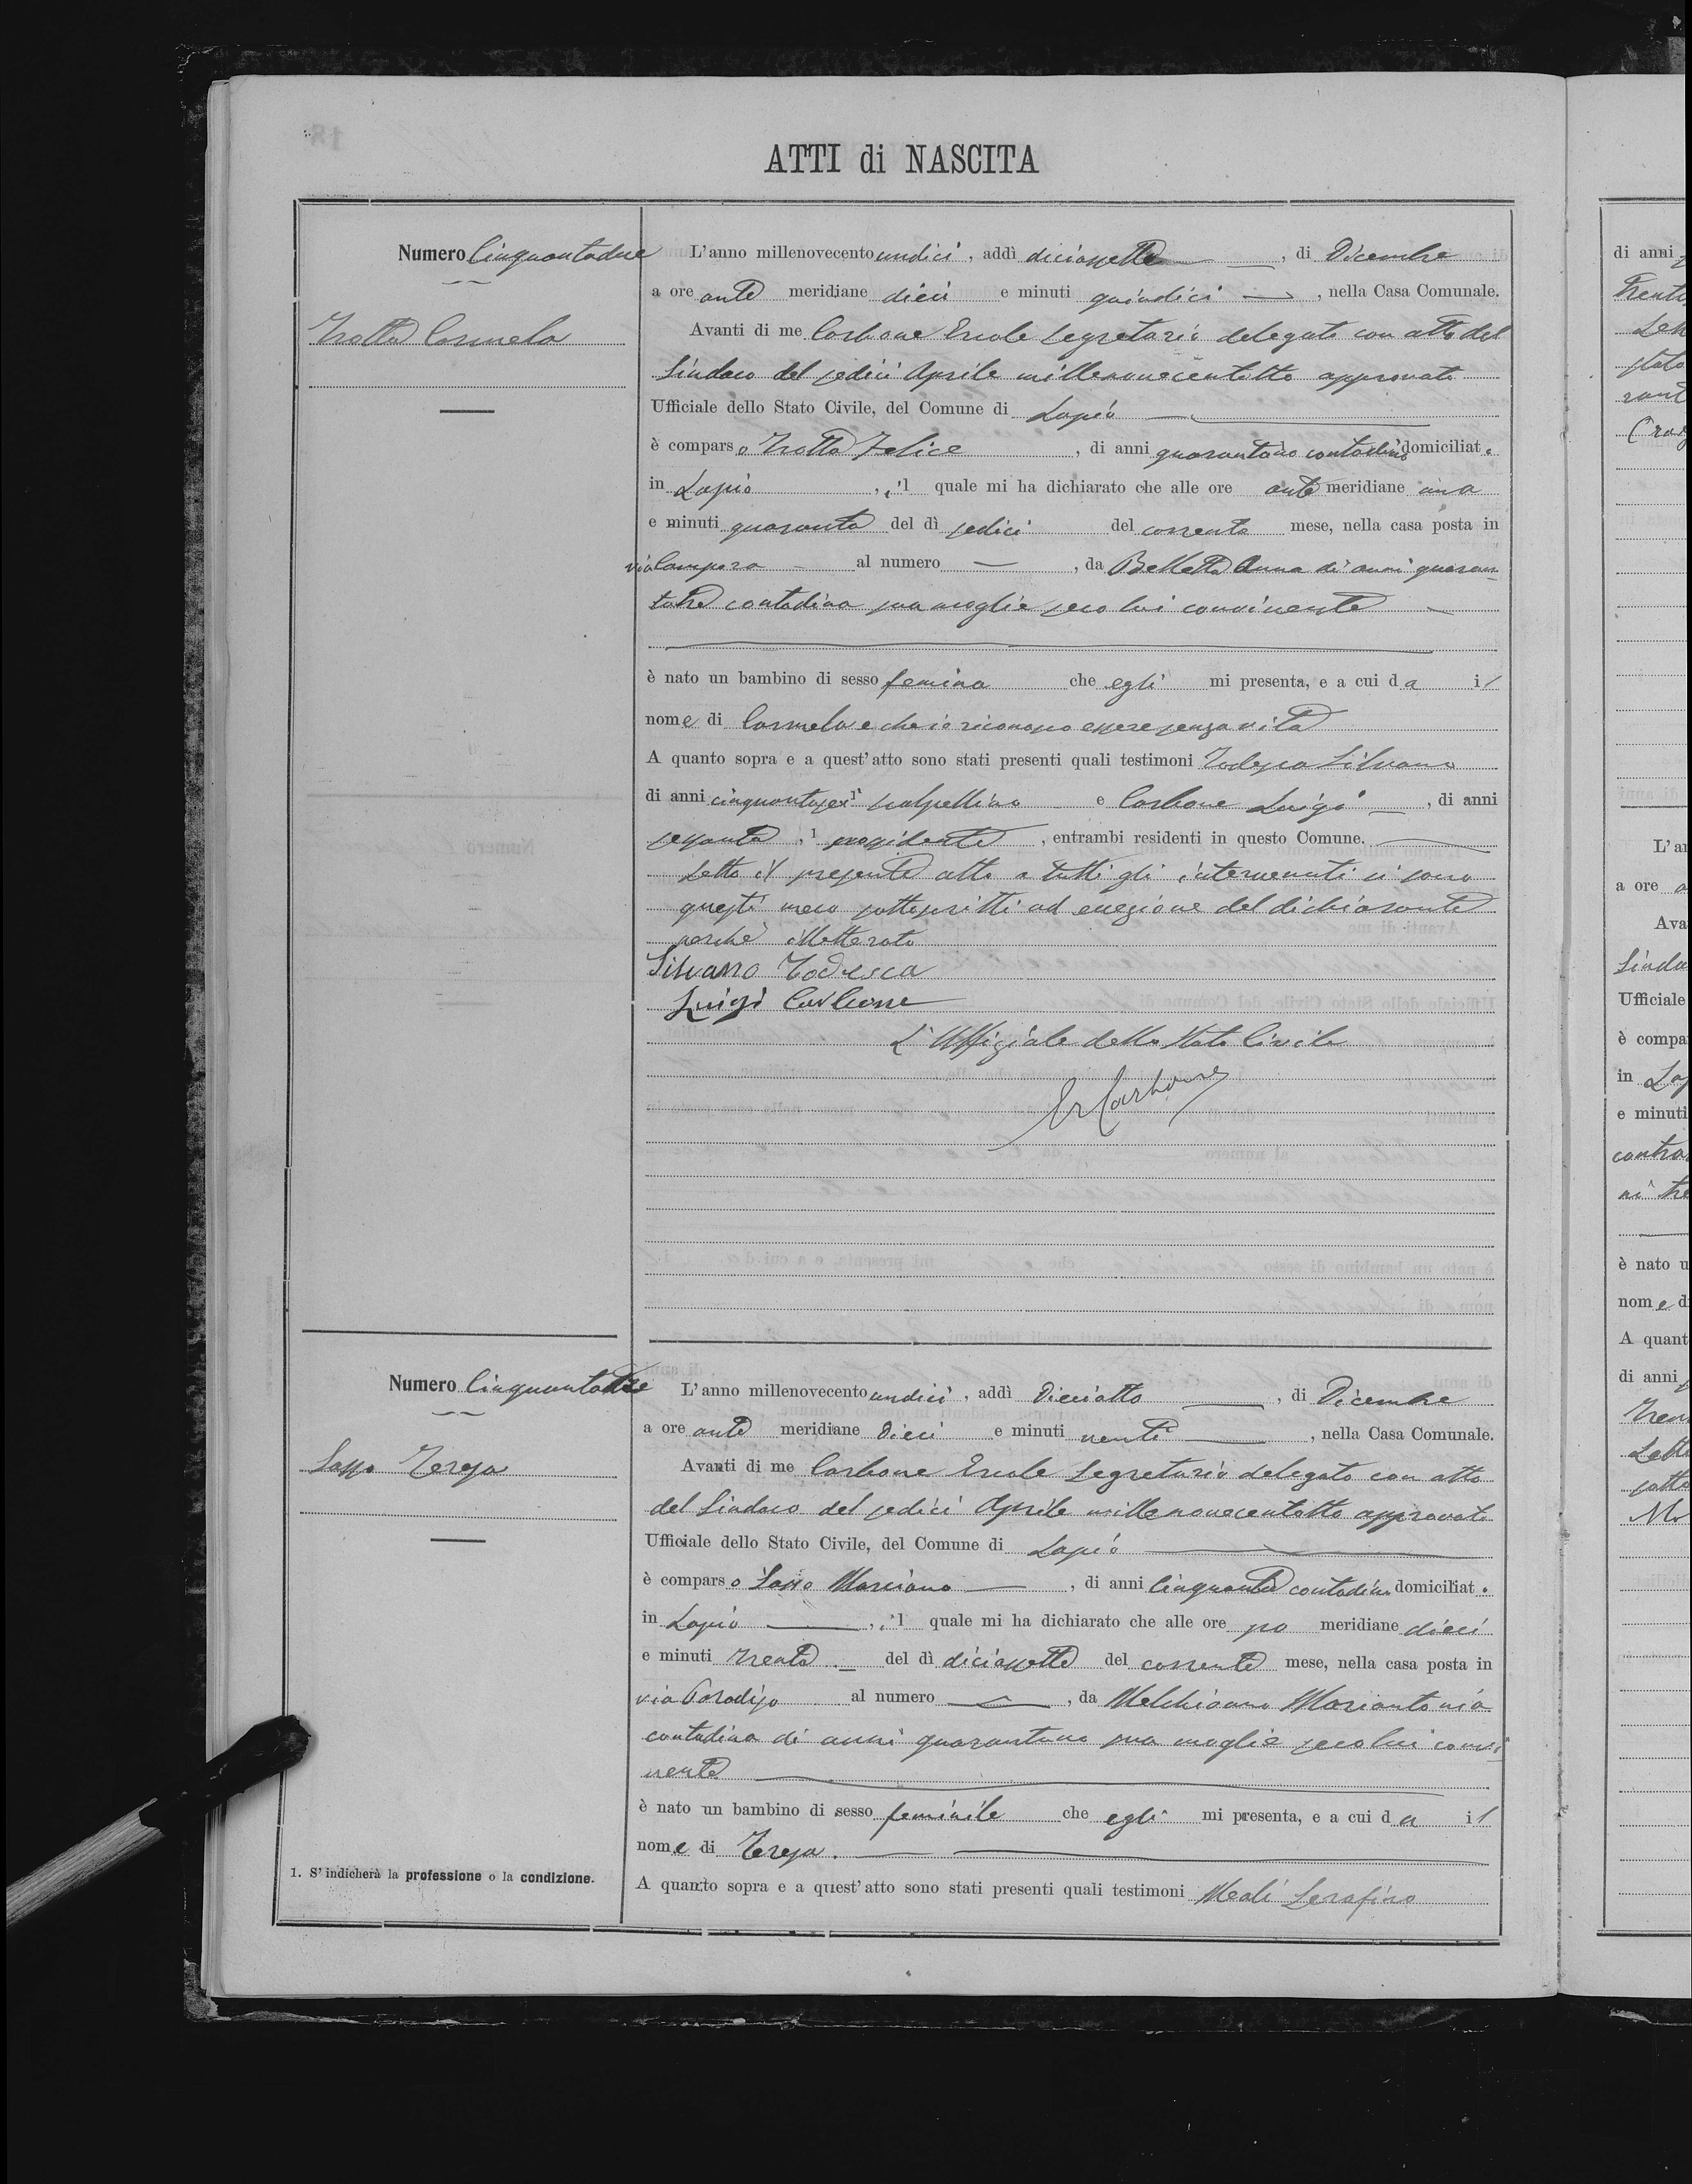 ATTI di NASCITA
Numero Cinquantadue
Trotta Carmela
L'anno millenovecento undici, addì diciassette, di Dicembre
a ore ante meridiane dieci e minuti quindici, nella Casa Comunale.
Avanti di me Carbone Ercole Segretario delegato con atto del
Sindaco del sedici Aprile millenovecentotto approvato
Ufficiale dello Stato Civile, del Comune di Lapio
è comparso Trotta Felice, di anni contadino domiciliato
in Lapio, il quale mi ha dichiarato che alle ore ante meridiane una
e minuti quaranta del dì sedici del corrente mese, nella casa posta in
via Campora al numero —, da Belletta Anna di anni quaran-
tatre contadina sua moglie seco lui convivente
è nato un bambino di sesso femina che egli mi presenta, e a cui da il
nome di Carmela e che io riconosco essere senza vita
A quanto sopra e a quest'atto sono stati presenti quali testimoni Todesca Silvano
di anni cinquantasei scalpellino e Carbone Luigi, di anni
sessanta, possidente, entrambi residenti in questo Comune.
Letto il presente atto a tutti gli intervenuti si sono
questi meco sottoscritti ad eccezione del dichiarante
perchè illetterato
Silvano Todesca
Luigi Carbone
L'Uffiziale dello Stato Civile
Er Carbone
Numero Cinquantatre
Sasso Teresa
L'anno millenovecento undici, addì Dieciotto, di Dicembre
a ore ante meridiane Dieci e minuti venti, nella Casa Comunale.
Avanti di me Carbone Ercole Segretario delegato con atto
del Sindaco del sedici Aprile millenovecentotto approvato
Ufficiale dello Stato Civile, del Comune di Lapio
è comparso Sasso Marciano, di anni cinquanta contadino domiciliato
in Lapio, il quale mi ha dichiarato che alle ore po meridiane dieci
e minuti trenta del dì diciassette del corrente mese, nella casa posta in
via Paradiso al numero —, da Melchionna Mariantonia
contadina di anni quarantuno sua moglie seco lui convi-
vente
è nato un bambino di sesso feminile che egli mi presenta, e a cui da il
nome di Teresa.
A quanto sopra e a quest'atto sono stati presenti quali testimoni Meoli Serafino
1. S'indicherà la professione o la condizione.